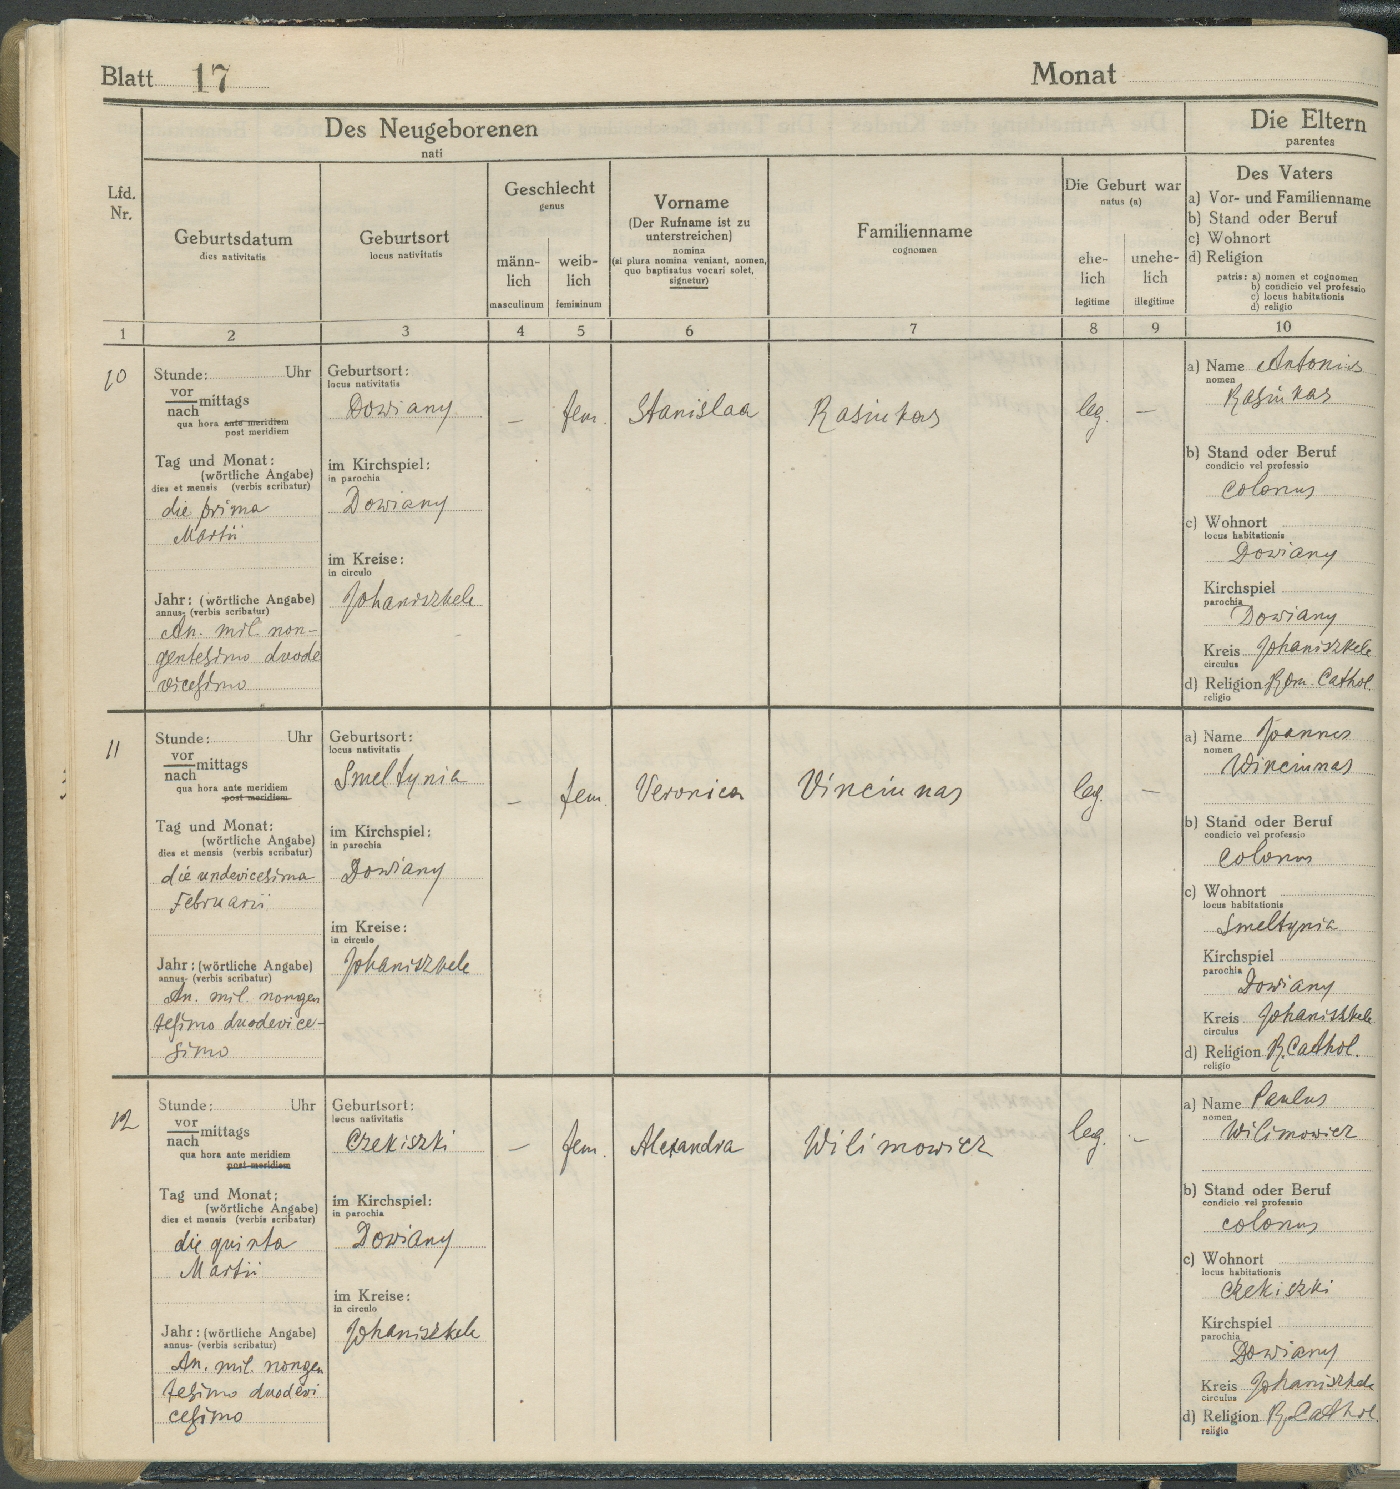 Blatt 17
Monat
Des Neugeborenen
nati
Die Eltern
parentes
Lfd.
Nr.
Geburtsdatum
dies nativitatis
Geburtsort
locus nativitatis
Geschlecht
genus
männ-
lich
masculinum
weib-
lich
femininum
Vorname
(Der Rufname ist zu
unterstreichen)
nomina
(si plura nomina veniant, nomen,
quo baptisatus vocari solet,
signetur)
Familienname
cognomen
Die Geburt war
natus (a)
ehe-
lich
legitime
unehe-
lich
illegitime
Des Vaters
a) Vor- und Familienname
b) Stand oder Beruf
c) Wohnort
d) Religion
patris: a) nomen et cognomen
b) condicio vel professio
c) locus habitationis
d) religio
1 2 3 4 5 6 7 8 9 10
10
Stunde: Uhr
vor
nach mittags
qua hora ante meridiem
post meridiem
Tag und Monat:
(wörtliche Angabe)
dies et mensis (verbis scribatur)
die prima
Martii
Jahr: (wörtliche Angabe)
annus: (verbis scribatur)
An. mil. non-
gentesimo duode
vicesimo
Geburtsort:
locus nativitatis
Dowiany
im Kirchspiel:
in parochia
Dowiany
im Kreise:
in circulo
Johaniszkele
– fem. Stanislaa Rasiukas leg. –
a) Name Antonius
nomen
Rasiukas
b) Stand oder Beruf
condicio vel professio
colonus
c) Wohnort
locus habitationis
Dowiany
Kirchspiel
parochia
Dowiany
Kreis Johaniszkele
circulus
d) Religion Rom. Cathol.
religio
11
Stunde: Uhr
vor
nach mittags
qua hora ante meridiem
post meridiem
Tag und Monat:
(wörtliche Angabe)
dies et mensis (verbis scribatur)
die undevicesima
Februarii
Jahr: (wörtliche Angabe)
annus- (verbis scribatur)
An. mil. nongen
tesimo duodevice-
simo
Geburtsort:
locus nativitatis
Smeltynia
im Kirchspiel:
in parochia
Dowiany
im Kreise:
in circulo
Johaniszkele
– fem. Veronica Vinciunas leg. –
a) Name Joannes
nomen
Winciunas
b) Stand oder Beruf
condicio vel professio
colonus
c) Wohnort
locus habitationis
Smeltynia
Kirchspiel
parochia
Dowiany
Kreis Johaniszkele
circulus
d) Religion R. Cathol.
religio
12
Stunde: Uhr
vor
nach mittags
qua hora ante meridiem
post meridiem
Tag und Monat:
(wörtliche Angabe)
dies et mensis (verbis scribatur)
die quinta
Martii
Jahr: (wörtliche Angabe)
annus- (verbis scribatur)
An. mil. nongen
tesimo duodevi
cesimo
Geburtsort:
locus nativitatis
Czekiszki
im Kirchspiel:
in parochia
Dowiany
im Kreise:
in circulo
Johaniszkele
– fem. Alexandra Wilimowicz leg. –
a) Name Paulus
nomen
Wilimowicz
b) Stand oder Beruf
condicio vel professio
colonus
c) Wohnort
locus habitationis
Czekiszki
Kirchspiel
parochia
Dowiany
Kreis Johaniszkele
circulus
d) Religion R. Cathol.
religio